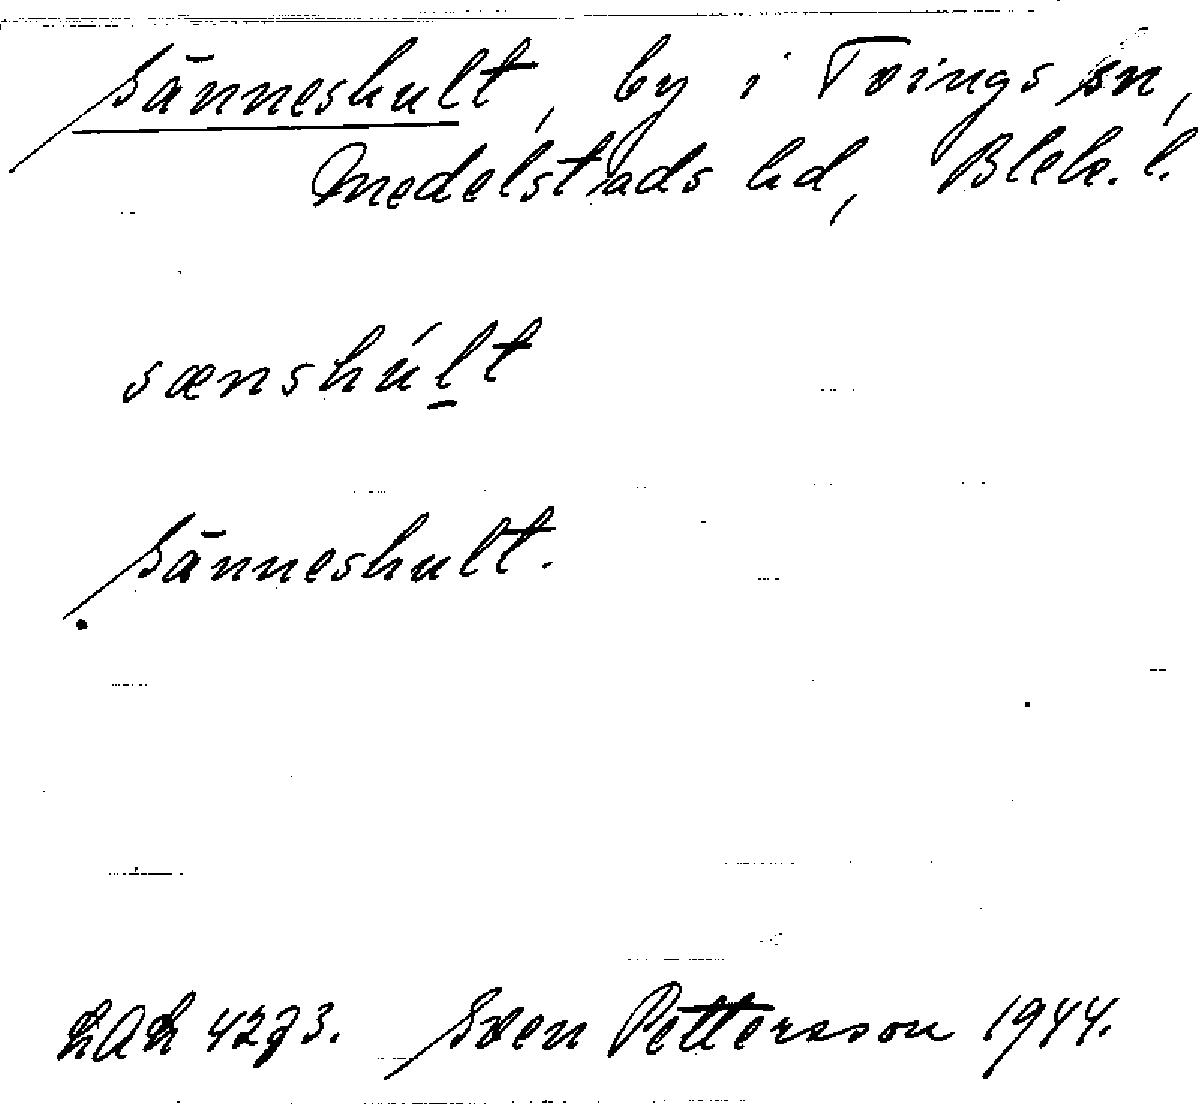 Sänneshult, by i Tvings sn,
Medelstads hd, Blek. l.
sænshúlt
Sänneshult.
LAL 4273. Sven Pettersson 1944.